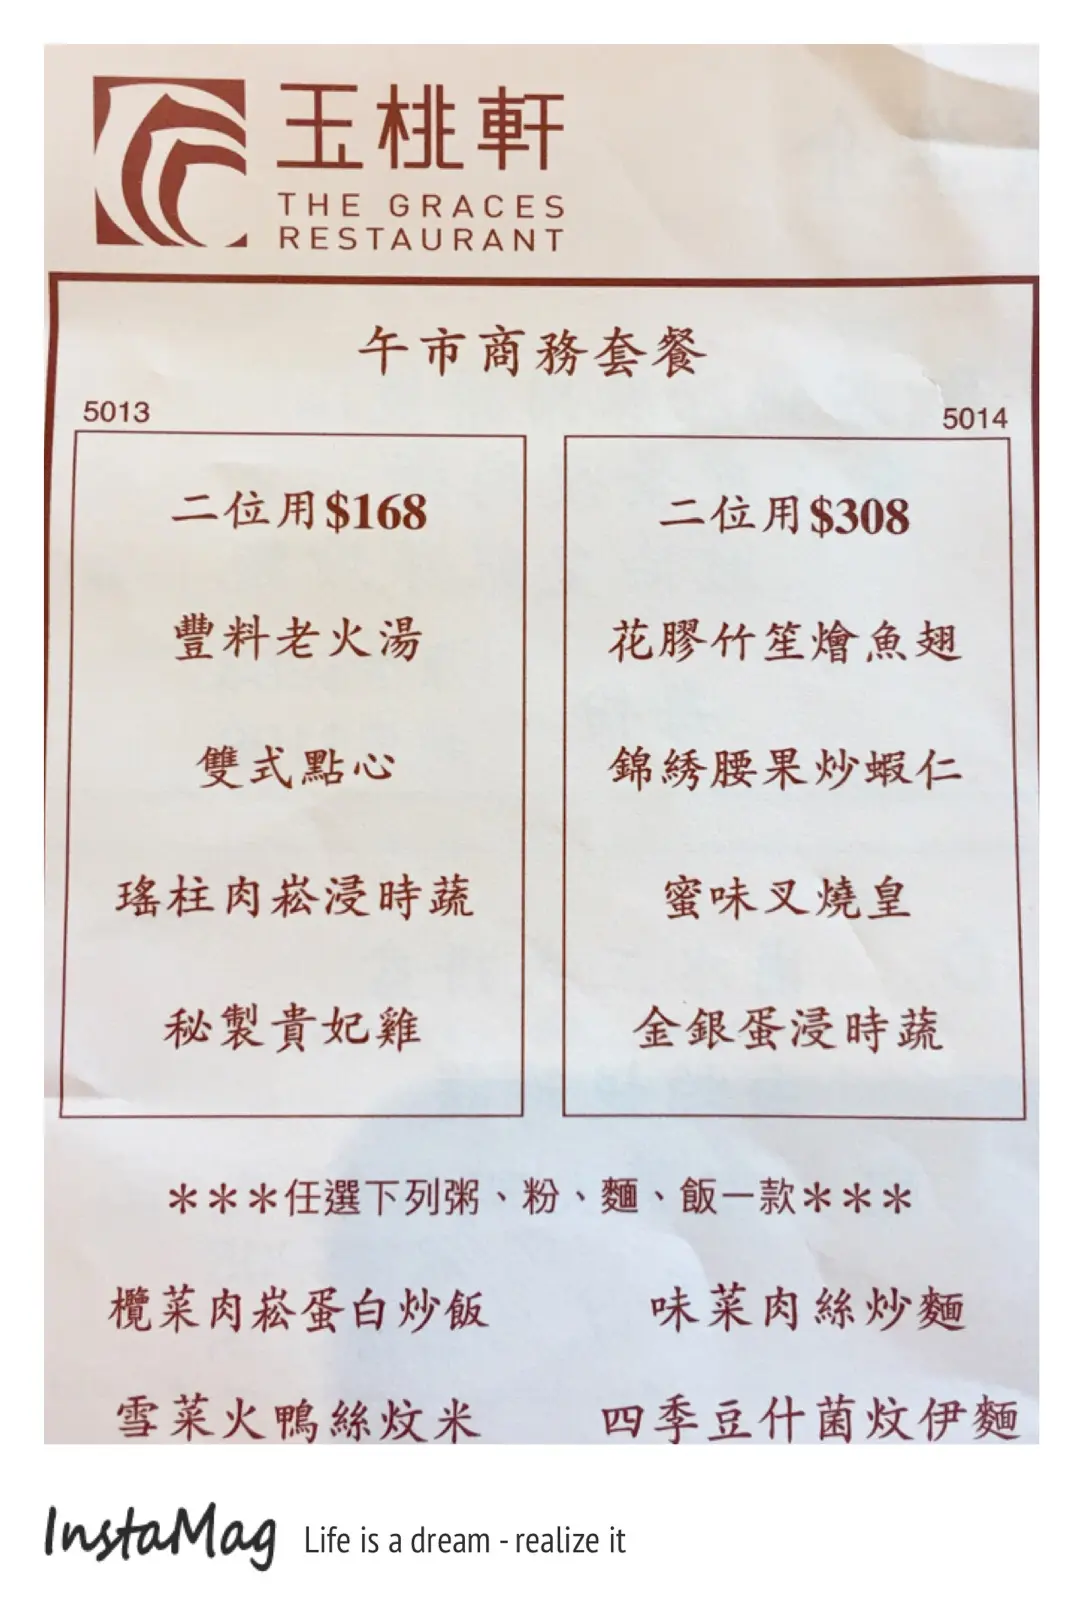 玉桃軒
THE GRACES
RESTAURANT
午市商務套餐
5013
二位用$168
豐料老火湯
雙式點心
瑤柱肉崧浸時蔬
秘製貴妃雞
5014
二位用$308
花膠竹笙燴魚翅
錦綉腰果炒蝦仁
蜜味叉燒皇
金銀蛋浸時蔬
***任選下列粥、粉、麵、飯一款***
欖菜肉崧蛋白炒飯
味菜肉絲炒麵
雪菜火鴨絲炆米
四季豆什菌炆伊麵
InstaMag Life is a dream - realize it